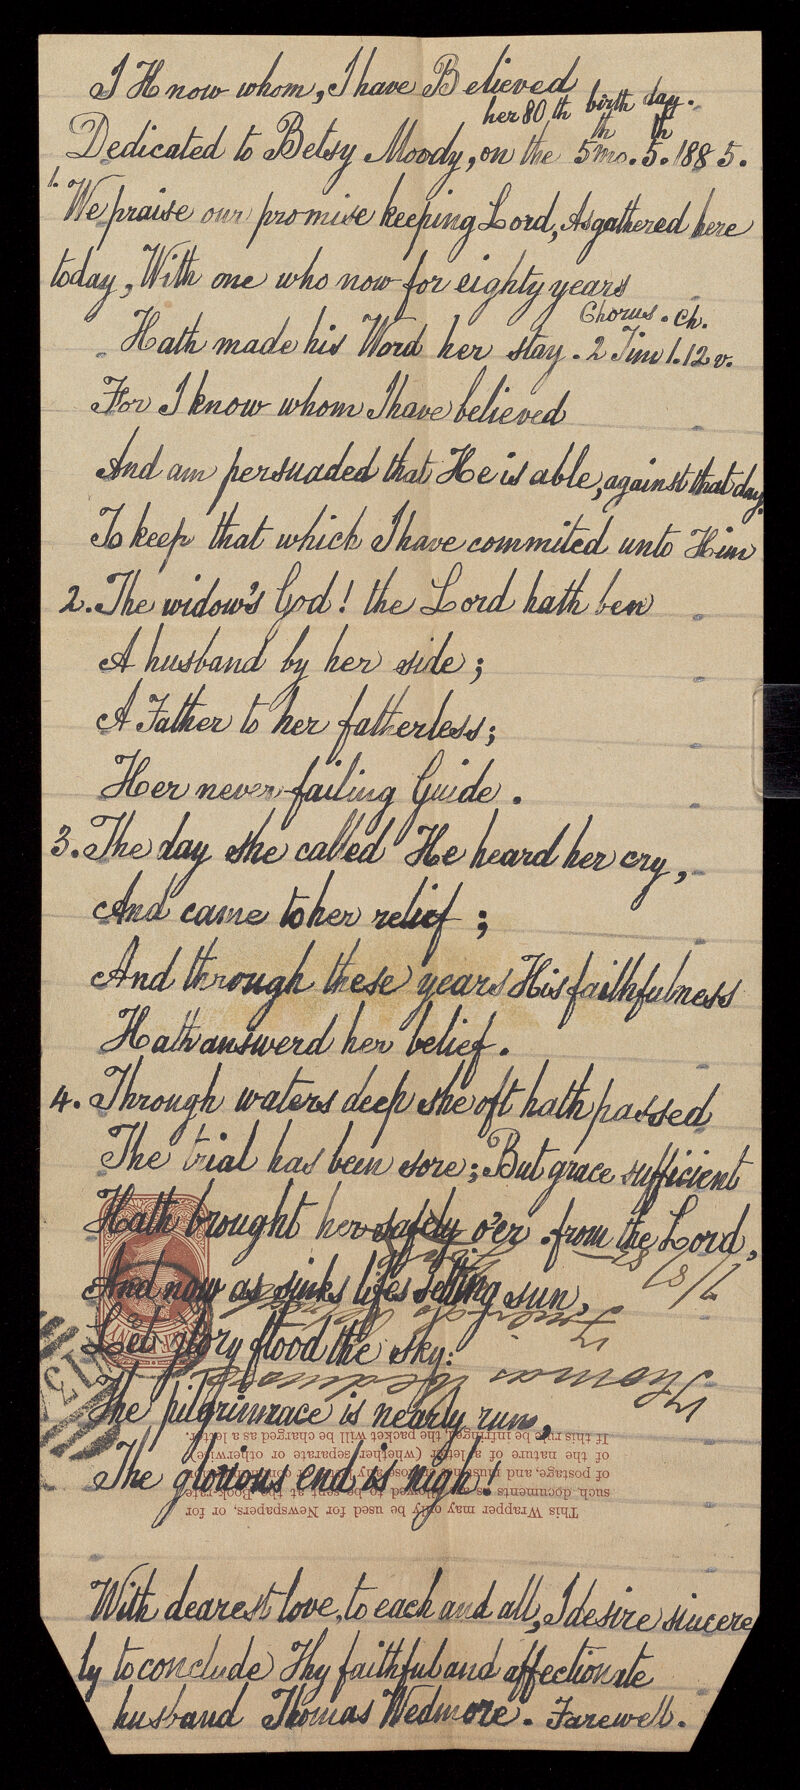 I Know whom, I have Believed
her 80 th birth day.
Dedicated to Betsy Moody, on the 5th mo. 5th. 1885.
1. We praise our promise keeping Lord, As gathered here
today, With one who now for eighty years
Chorus. Ch.
Hath made his Word her stay. 2 Tim 1. 12 v.
For I know whom I have believed
And am persuaded that He is able, against that day.
To keep that which I have commited unto Him
2. The widow's God! the Lord hath ben
A husband by her side;
A Father to her fatherless;
Her never-failing Guide.
3. The day she called He heard her cry,
And came to her relief;
And through these years His faithfulness
Hath answerd her belief.
4. Through waters deep she oft hath passed
The trial has been sore; But grace sufficient
Hath brought her safely o'er. from the Lord,
And now as sinks lifes setting sun,
Let glory flood the sky:
The pilgrimrace is nearly run,
The glorious end is nigh!
This Wrapper may only be used for Newspapers, or for
such documents as are allowed to be sent at the Book-rate
of postage, and must not enclose any letter or communication
of the nature of a letter (whether separate or otherwise).
If this rule be infringed, the packet will be charged as a letter.
Thomas Wedmore
13
With dearest love, to each and all, I desire sincere
ly to conclude Thy faithful and affectionate
husband Thomas Wedmore. Farewell.